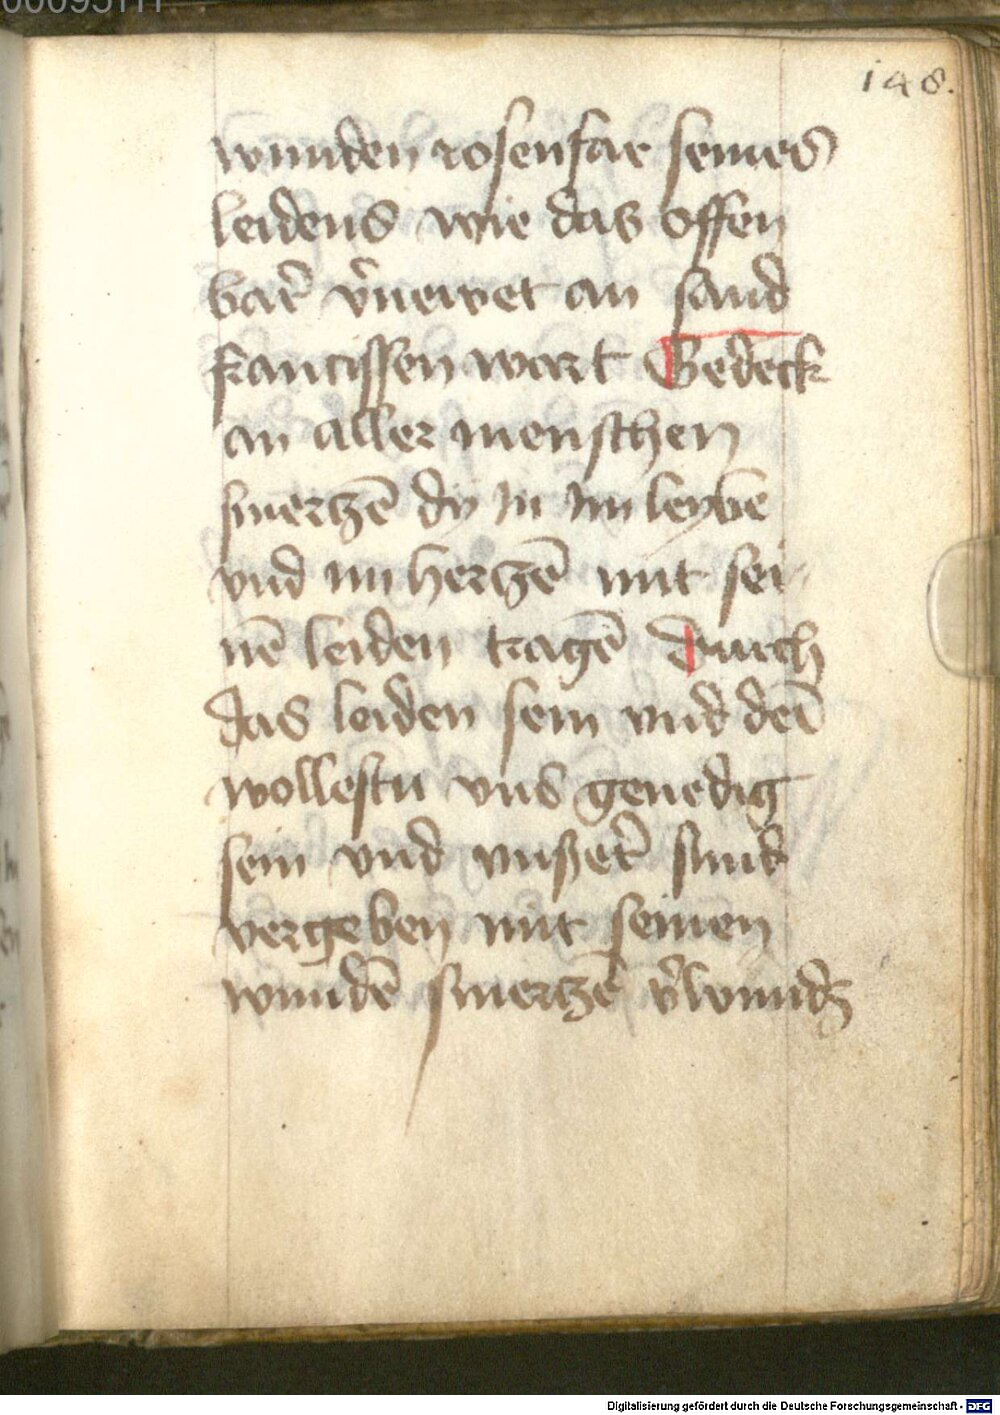 148.
wunden rosenfar seines
leidens wie das offen
bar̉ v̉newet an sand
francissen wart Gedeck
an aller menschen
smerczē dy in im leybe
vnd im herczē mit sei
nē leiden tragē Durch
das leiden sein vnd dei̅
wollestu vns genedig
sein vnd vnßer̉ sund
vergeben mit seinen
wundē smerczē
Digitalisierung gefördert durch die Deutsche Forschungsgemeinschaft - DFG